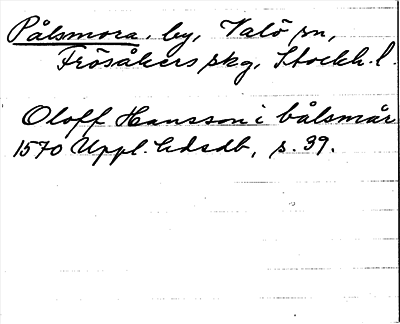 Pålsmora. by, Valö sn,
Frösåkers skg, Stockh. l.
Oloff Hansson i bålsmår
1570 Uppl. hdsdb, s. 39.